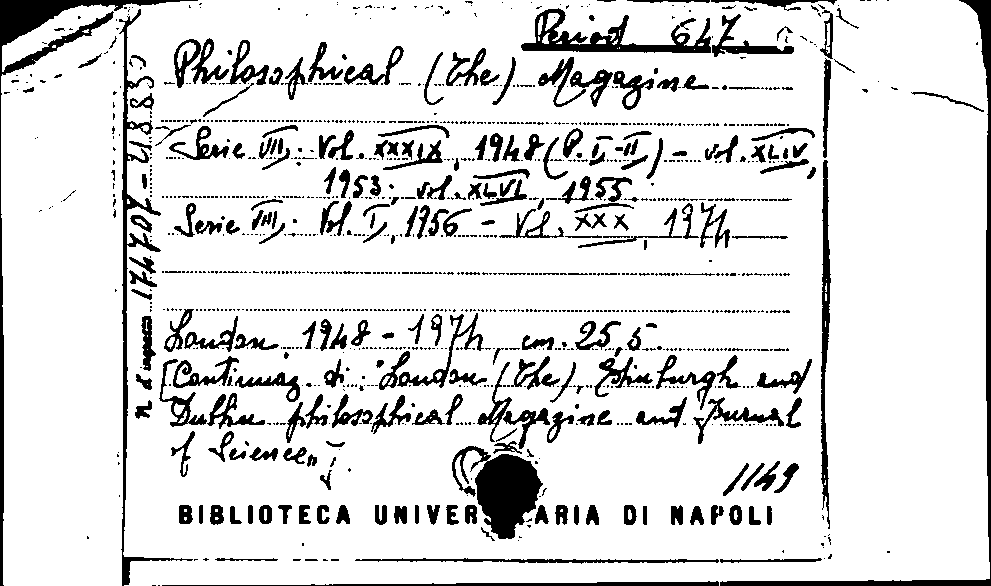 Period. 647.
Philosophical (The) Magazine.
Serie VIII,: Vol. XXXIX, 1948 (P. I,-II) - vol. XLIV,
1953; vol. XLVI, 1955.
Serie VIII,: Vol. I, 1956 - Vol. XXX, 1974
London, 1948 - 1974, cm. 25,5.
[Continuaz. di: "London (The), Edinburgh and
Dublin philosophical Magazine and Journal
of Science"].
1149
BIBLIOTECA UNIVER ARIA DI NAPOLI
n. d'ingresso 174707 - 218830